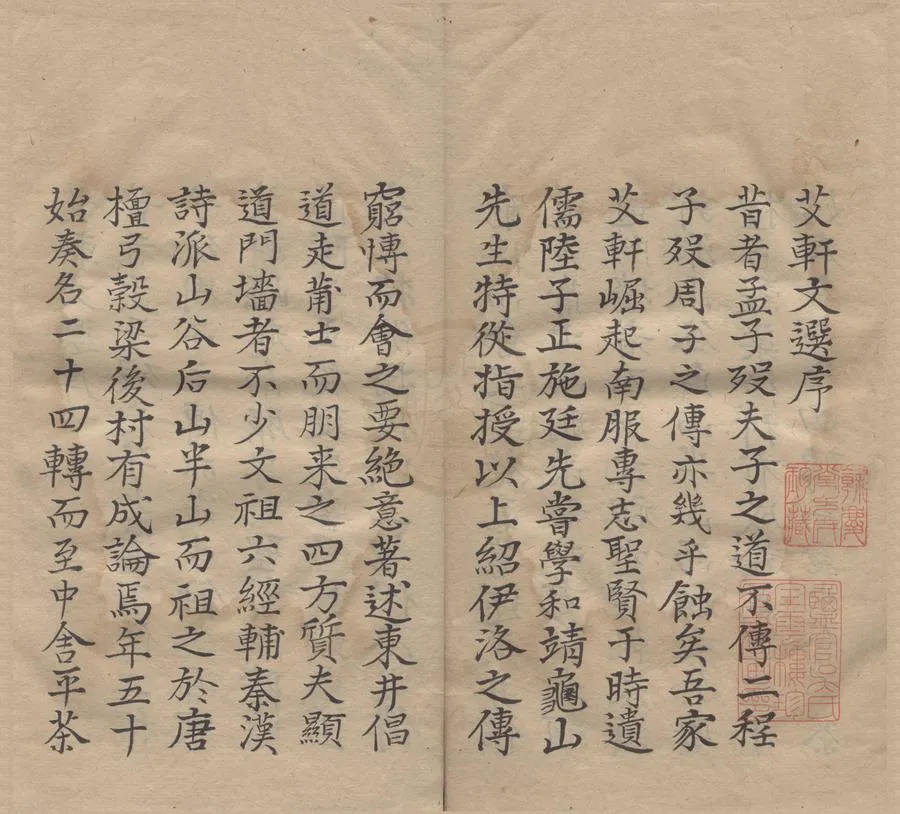 艾軒文選序
昔者孟子歿夫子之道不傳二程
子歿周子之傳亦幾乎蝕矣吾家
艾軒崛起南服專志聖賢于時遺
儒陸子正施廷先嘗學和靖龜山
先生特從指授以上紹伊洛之傳
窮慱而會之要絶意著述東井倡
道走莆士而朋来之四方質夫顯
道門墻者不少文祖六經輔秦漢
詩派山谷后山半山而祖之於唐
檀弓穀梁後村有成論焉年五十
始奏名二十四轉而至中舍平茶